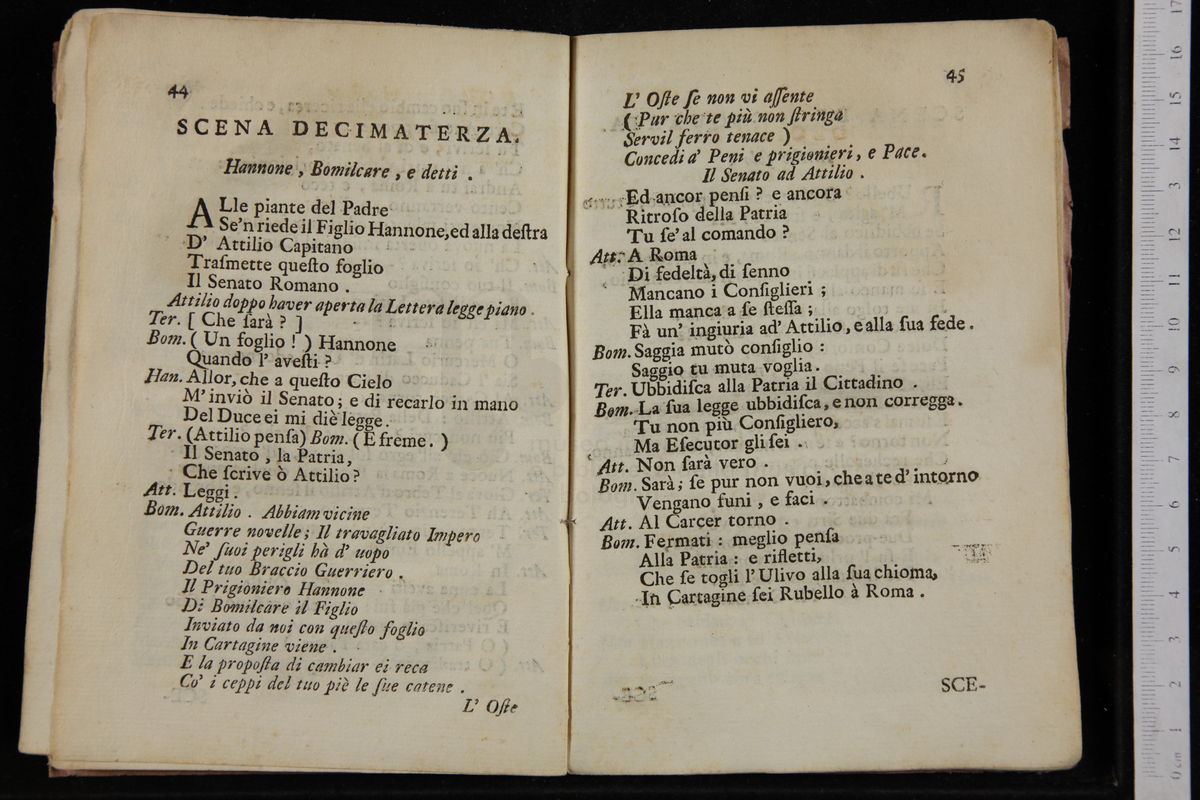 44
SCENA DECIMATERZA.
Hannone, Bomilcare, e detti.
ALle piante del Padre
Se'n riede il Figlio Hannone, ed alla destra
D' Attilio Capitano
Trasmette questo foglio
Il Senato Romano.
Attilio doppo haver aperta la Lettera legge piano.
Ter. [ Che sarà? ]
Bom. ( Un foglio! ) Hannone
Quando l' avesti?
Han. Allor, che a questo Cielo
M' inviò il Senato; e di recarlo in mano
Del Duce ei mi diè legge.
Ter. (Attilio pensa) Bom. (E freme. )
Il Senato, la Patria,
Che scrive ò Attilio?
Att. Leggi.
Bom. Attilio. Abbiam vicine
Guerre novelle; Il travagliato Impero
Ne' suoi perigli hà d' uopo
Del tuo Braccio Guerriero.
Il Prigioniero Hannone
Di Bomilcare il Figlio
Inviato da noi con questo foglio
In Cartagine viene.
E la proposta di cambiar ei reca
Co' i ceppi del tuo piè le sue catene.
L' Oste
45
L' Oste se non vi assente
( Pur che te più non stringa
Servil ferro tenace )
Concedi a' Peni e prigionieri, e Pace.
Il Senato ad Attilio.
Ed ancor pensi? e ancora
Ritroso della Patria
Tu se' al comando?
Att. A Roma
Di fedeltà, di senno
Mancano i Consiglieri;
Ella manca a se stessa;
Fà un' ingiuria ad' Attilio, e alla sua fede.
Bom. Saggia mutò consiglio:
Saggio tu muta voglia.
Ter. Ubbidisca alla Patria il Cittadino.
Bom. La sua legge ubbidisca, e non corregga.
Tu non più Consigliero,
Ma Esecutor gli sei.
Att. Non sarà vero.
Bom. Sarà; se pur non vuoi, che a te d' intorno
Vengano funi, e faci.
Att. Al Carcer torno.
Bom. Fermati: meglio pensa
Alla Patria: e rifletti,
Che se togli l' Ulivo alla sua chioma,
In Cartagine sei Rubello à Roma.
SCE-